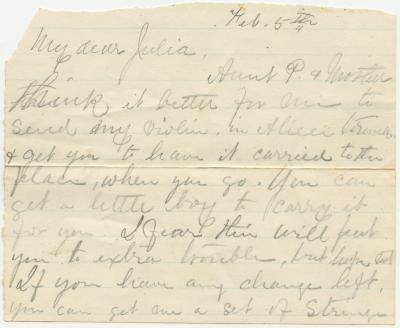 Feb. 5th
My dear Julia,
Aunt P. & Mother
think it better for me to
send my violin in Alice's trunk
& get you to have it carried to the
place, when you go. You can
get a little boy to carry it
for you. I fear this will put
you to extra trouble, but hope not
If you have any change left,
you can get me a set of Strings